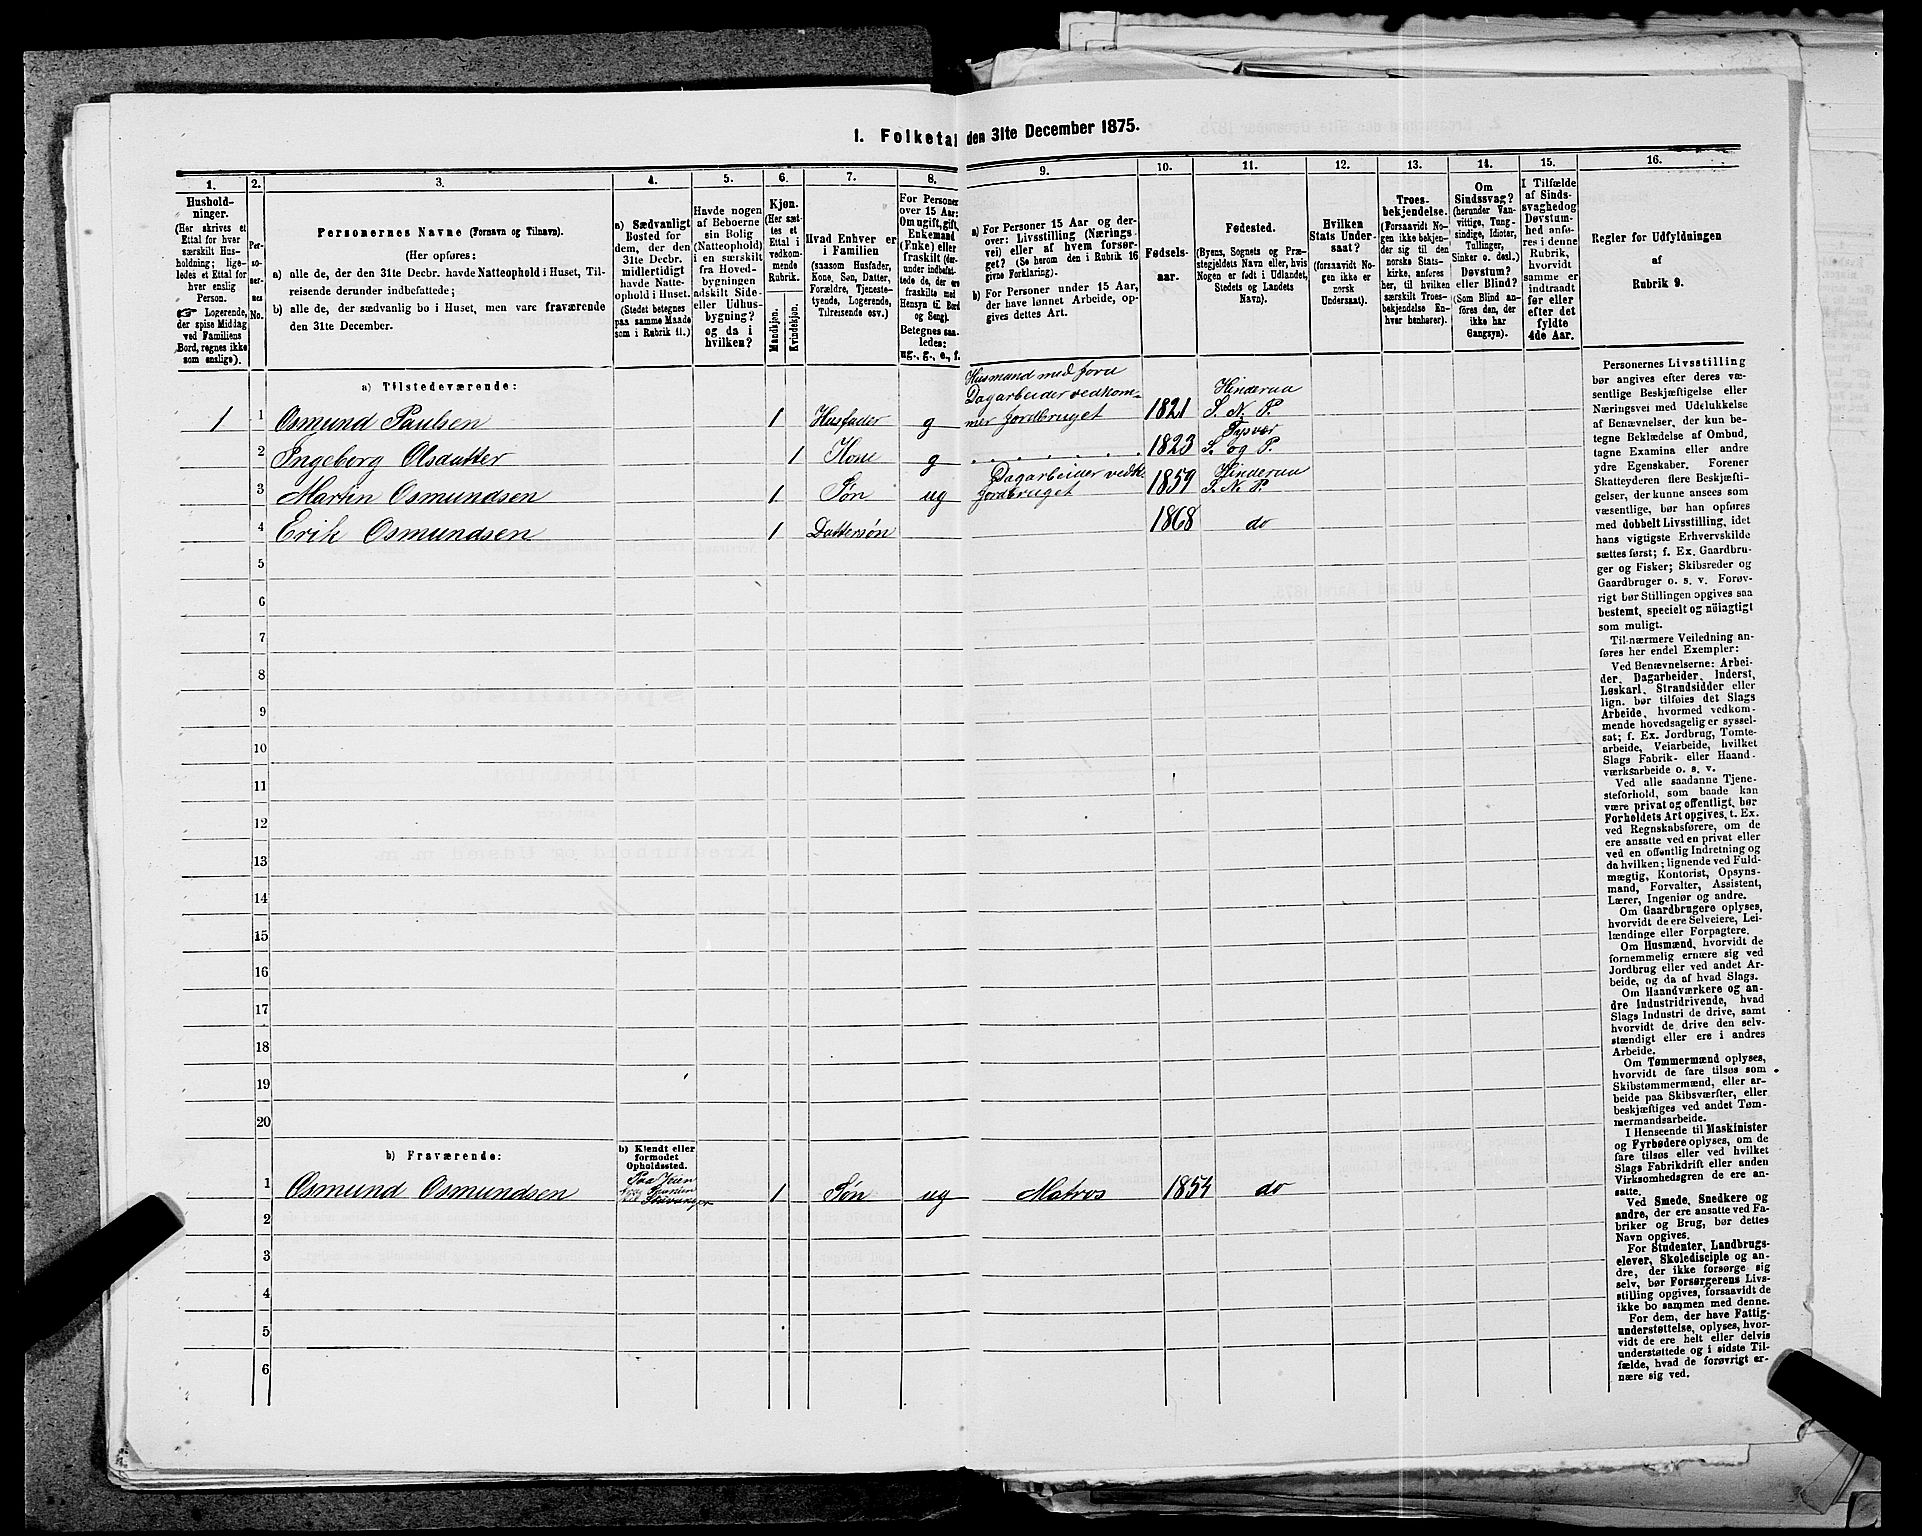 1. Folketal den 31te December 1875.
1. 2. 3. 4. 5. 6. 7. 8. 9. 10. 11. 12. 13. 14. 15. 16.
Hushold-
ninger.
(Her skrives et
Ettal for hver
særskilt Hus-
holdning; lige-
ledes et Ettal for
hver enslig
Person.
☞ Logerende,
der spise Middag
ved Familiens
Bord, regnes ikke
som enslige).
Per-
so-
ner-
nes
No.
Personernes Navne (Fornavn og Tilnavn).
(Her opføres:
a) alle de, der den 31te Decbr. havde Natteophold i Huset, Til-
reisende derunder indbefattede;
b) alle de, der sædvanlig bo i Huset, men vare fraværende
den 31te December.
a) Sædvanligt
Bosted for
dem, der den
31te Decbr.
midlertidigt
havde Natte-
ophold i Huset.
(Stedet betegnes
paa samme Maade
som i Rubrik 11.)
Havde nogen
af Beboerne
sin Bolig
(Natteophold)
i en særskilt
fra Hoved-
bygningen
adskilt Side-
eller Udhus-
bygning?
og da i
hvilken?
Kjøn.
(Her sæt-
tes et
Ettal i
vedkom-
mende
Rubrik.
Mandkjøn.
Kvindekjøn.
Hvad Enhver er
i Familien
(saasom Husfader,
Kone, Søn, Datter,
Forældre, Tjeneste-
tyende, Logerende,
Tilreisende osv.)
For Personer
over 15 Aar:
Om ugift, gift,
Enkemand
(Enke) eller
fraskilt (der-
under indbefat-
tede de, der ere
fraskilte med
Hensyn til Bord
og Seng).
Betegnes saa-
ledes:
ug., g., e., f.
a) For Personer 15 Aar og der-
over: Livsstilling (Nærings-
vei) eller af hvem forsør-
get? (Se herom den i Rubrik 16
givne Forklaring).
b) For Personer under 15 Aar,
der have lønnet Arbeide, op-
gives dettes Art.
Fødsels-
aar.
Fødested.
(Byens, Sognets og Præ-
stegjeldets Navn eller, hvis
Nogen er født i Udlandet,
Stedets og Landets
Navn).
Hvilken
Stats Under-
saat?
(forsaavidt No-
gen ikke er
norsk
Undersaat).
Troes-
bekjendelse.
(Forsaavidt No-
gen ikke bekjen-
der sig til den
norske Stats-
kirke, anføres
her, til hvilken
særskilt Troes-
bekjendelse En-
hver henhører).
Om
Sindssvag?
(herunder Van-
vittige, Tung-
sindige, Idioter,
Tullinger,
Sinker o. desl.)
Døvstum?
eller Blind?
(Som Blind an-
føres den, der
ikke har
Gangsyn).
I Tilfælde
af Sinds-
svaghed og
Døvstum-
hed anfø-
res i denne
Rubrik,
hvorvidt
samme er
indtraadt
før eller
efter det
fyldte
4de Aar.
Regler for Udfyldningen
af
Rubrik 9.
a) Tilstedeværende:
1 1 Osmund Paulsen 1 Husfader g Husmand med jord
Dagarbeider vedkom-
mer jordbruget 1821 Hinderaa
S. N. P.
2 Ingeborg Olsdatter 1 Kone g 1823 Tysvær
S. og P.
3 Martin Osmundsen 1 Søn ug Dagarbeider vedk.
jordbruget 1859 Hinderaa
S. N. P.
4 Erik Osmundsen 1 Dattersøn 1868 do
5
6
7
8
9
10
11
12
13
14
15
16
17
18
19
20
b) Fraværende:
b) Kjendt eller
formodet
Opholdssted.
1 Osmund Osmundsen Paa Veien
Stavanger 1 Søn ug Matros 1854 do
2
3
4
5
6
Personernes Livsstilling
bør angives efter deres væ-
sentlige Beskjæftigelse eller
Næringsvei med Udelukkelse
af Benævnelser, der kun be-
tegne Beklædelse af Ombud,
tagne Examina eller andre
ydre Egenskaber. Forener
Skatteyderen flere Beskjæfti-
gelser, der kunne ansees som
væsentlige, bør han opføres
med dobbelt Livsstilling, idet
hans vigtigste Erhvervskilde
sættes først; f. Ex. Gaardbru-
ger og Fisker; Skibsreder og
Gaardbruger o. s. v. Forøv-
rigt bør Stillingen opgives saa
bestemt, specielt og nöiagtigt
som muligt.
Til nærmere Veiledning an-
føres her endel Exempler:
Ved Benævnelserne: Arbei-
der, Dagarbeider, Inderst,
Løskarl, Strandsidder eller
lign. bør tilføies det Slags
Arbeide, hvormed vedkom-
mende hovedsagelig er syssel-
sat; f. Ex. Jordbrug, Tomte-
arbeide, Veiarbeide, hvilket
Slags Fabrik- eller Haand-
værksarbeide o. s. v.
Ved alle saadanne Tjene-
steforhold, som baade kan
være privat og offentligt, bør
Forholdets Art opgives, t. Ex.
ved Regnskabsførere, om de
ere ansatte ved en privat eller
ved en offentlig Indretning og
da hvilken; lignende ved Fuld-
mægtig, Kontorist, Opsyns-
mand, Forvalter, Assistent,
Lærer, Ingeniør og andre.
Om Gaardbrugere oplyses,
hvorvidt de ere Selveiere, Lei-
lændinge eller Forpagtere.
Om Husmænd, hvorvidt de
fornemmelig ernære sig ved
Jordbrug eller ved andet Ar-
beide, og da af hvad Slags.
Om Haandværkere og an-
dre Industridrivende, hvad
Slags Industri de drive, samt
hvorvidt de drive den selv-
stændigt eller ere i andres
Arbeide.
Om Tømmermænd oplyses,
hvorvidt de fare tilsøs som
Skibstømmermænd, eller ar-
beide paa Skibsværfter, eller
beskjæftiges ved andet Tøm-
mermandsarbeide.
I Henseende til Maskinister
og Fyrbødere oplyses, om de
fare tilsøs eller ved hvilket
Slags Fabrikdrift eller anden
Virksomhedsgren de ere an-
satte.
Ved Smede, Snedkere og
andre, der ere ansatte ved Fa-
briker og Brug, bør dettes
Navn opgives.
For Studenter, Landbrugs-
elever, Skoledisciple og an-
dre, der ikke forsørge sig
selv, bør Forsørgerens Livs-
stilling opgives, forsaavidt de
ikke bo sammen med denne.
For dem, der have Fattig-
understøttelse, oplyses, hvor-
vidt de ere helt eller delvis
understøttede og i sidste Til-
fælde, hvad de forøvrigt er-
nære sig ved.